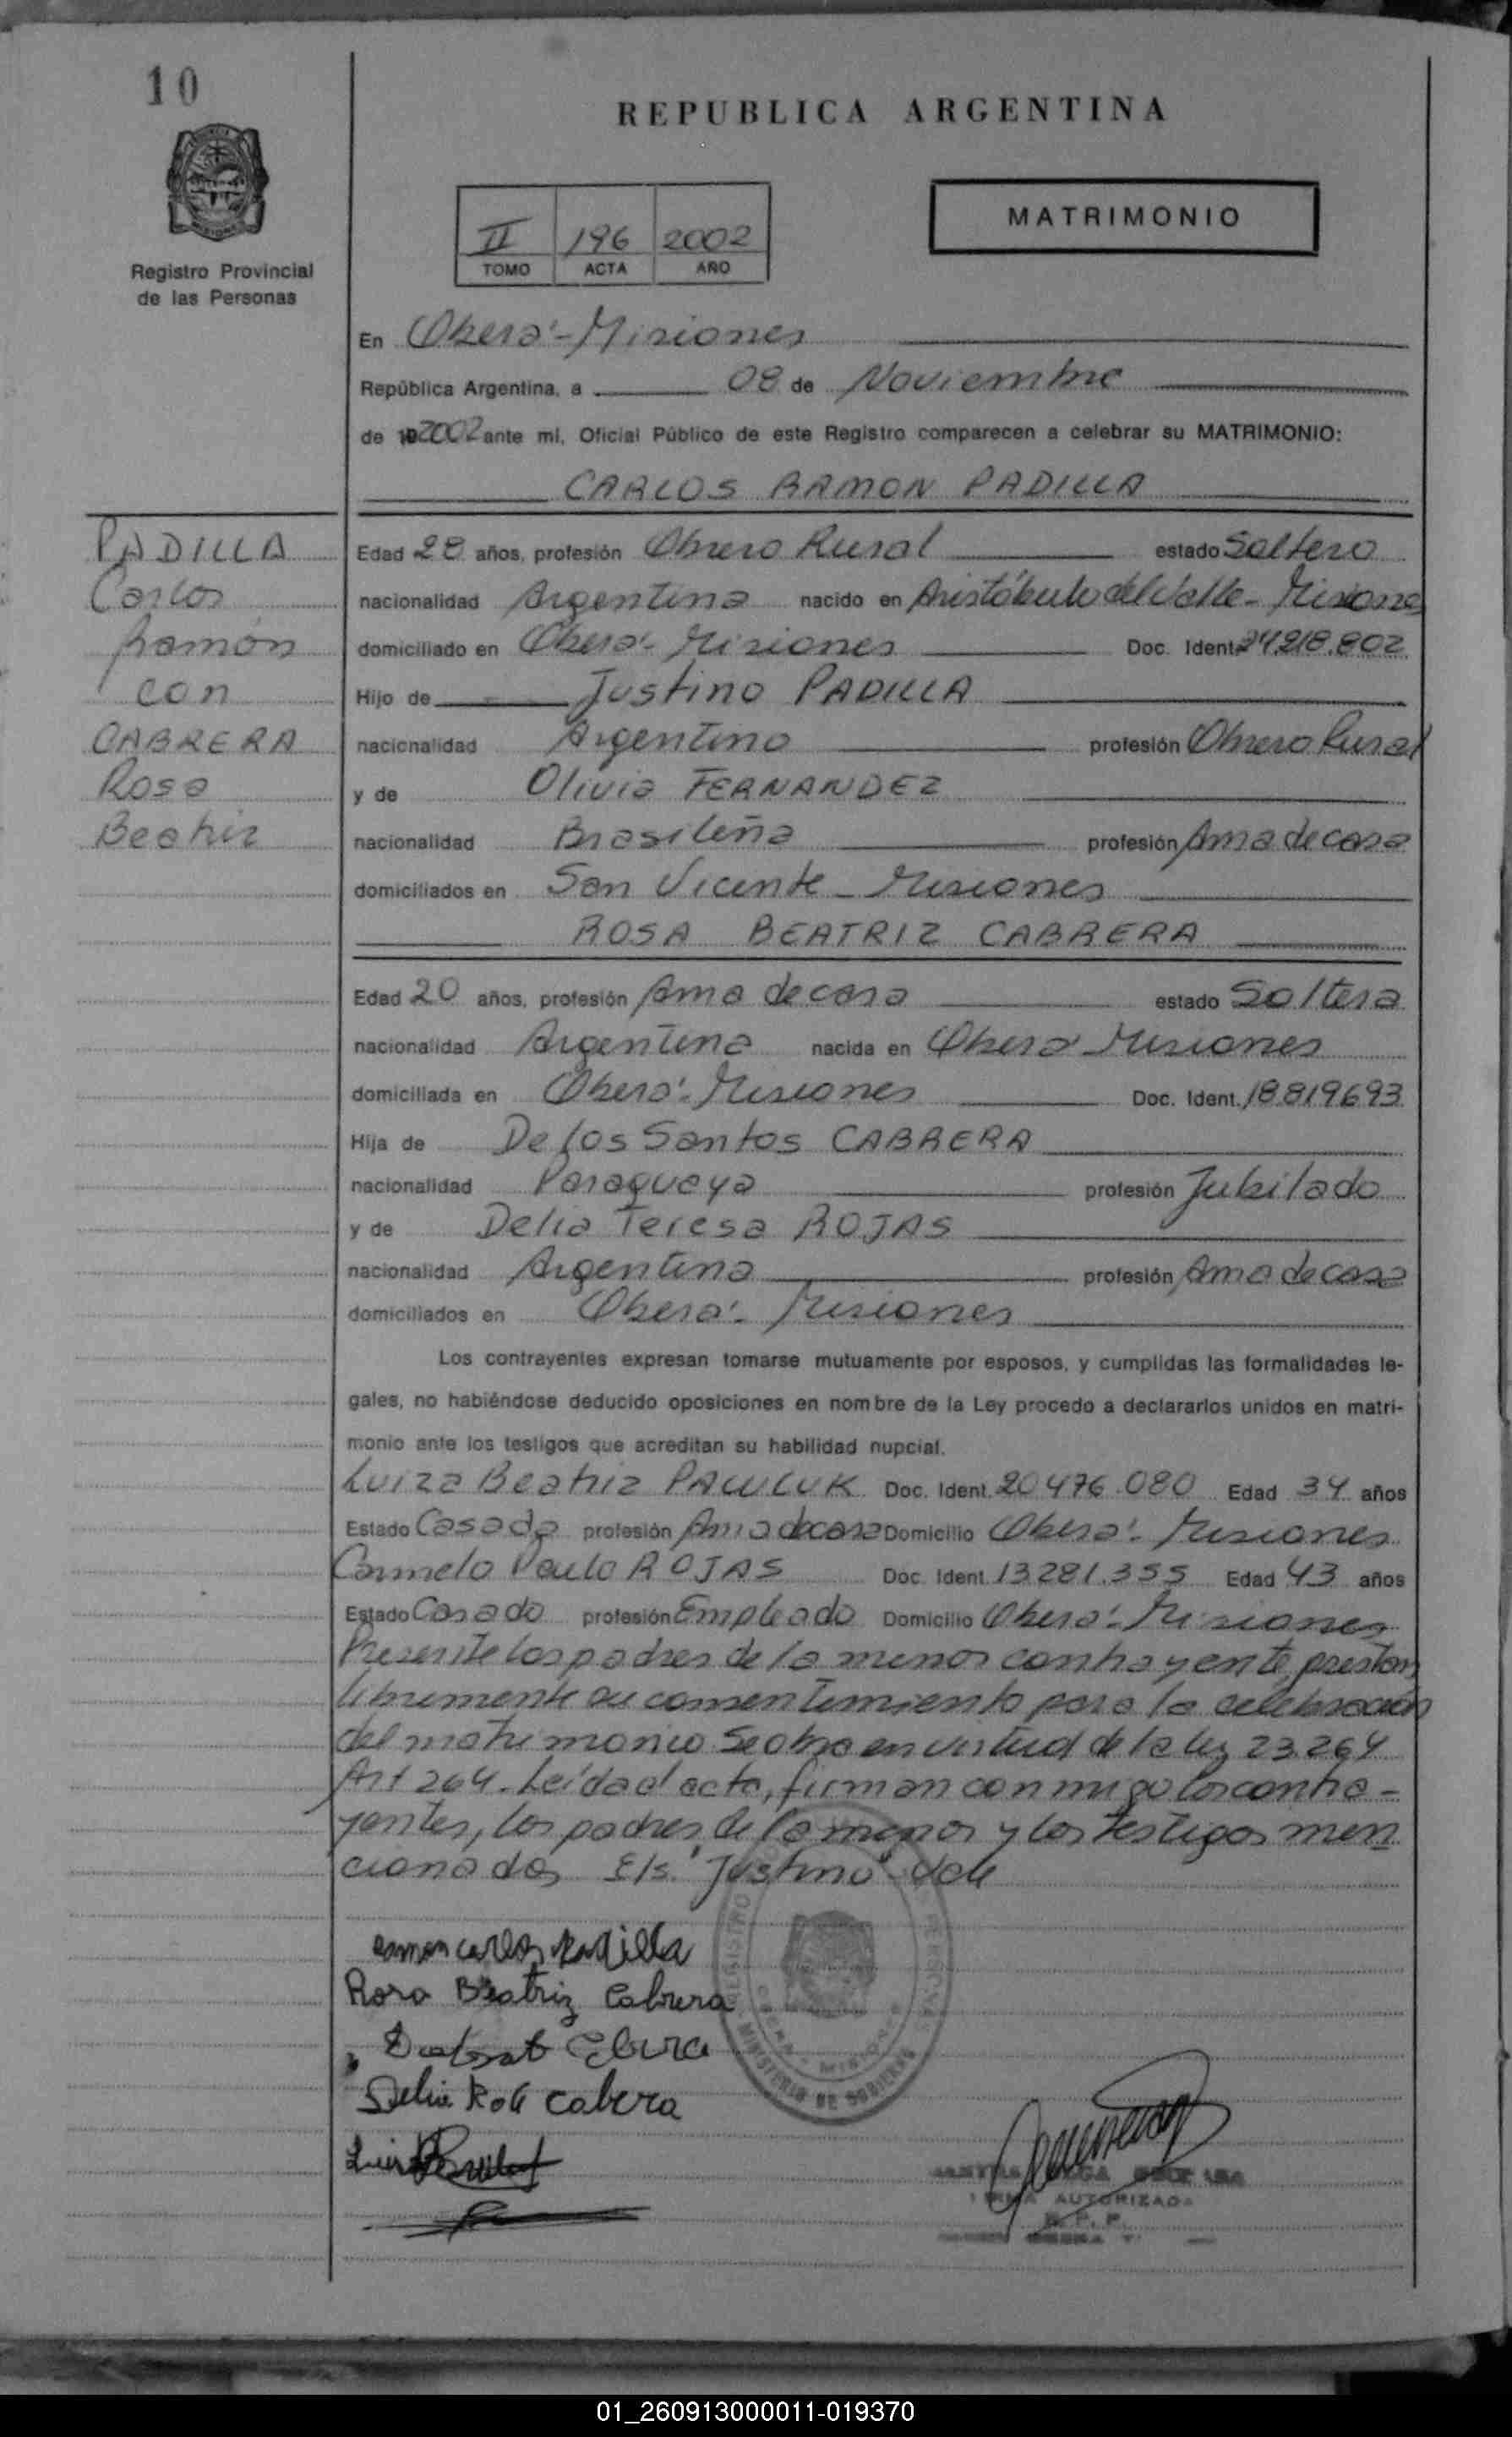 10
REPUBLICA ARGENTINA
MATRIMONIO
II 196 2002
TOMO ACTA AÑO
Registro Provincial
de las Personas
En Oberá-Misiones
República Argentina, a 08 de Noviembre
de 2002 ante mi, Oficial Público de este Registro comparecen a celebrar su MATRIMONIO:
CARLOS RAMON PADILLA
PADILLA
Carlos
Ramón
con
CABRERA
Rosa
Beatriz
Edad 28 años, profesión Obrero Rural estado Soltero
nacionalidad Argentina nacido en Aristóbulo del Valle - Misiones
domiciliado en Oberá- Misiones Doc. Ident. 24.218.802
Hijo de Justino PADILLA
nacionalidad Argentino profesión Obrero Rural
y de Olivia FERNANDEZ
nacionalidad Brasileña profesión Ama de casa
domiciliados en San Vicente - Misiones
ROSA BEATRIZ CABRERA
Edad 20 años, profesión Ama de casa estado Soltera
nacionalidad Argentina nacida en Oberá - Misiones
domiciliada en Oberá- Misiones Doc. Ident. 18819693
Hija de De los Santos CABRERA
nacionalidad Paraguaya profesión Jubilado
y de Delia Teresa ROJAS
nacionalidad Argentina profesión Ama de casa
domiciliados en Oberá- Misiones
Los contrayentes expresan tomarse mutuamente por esposos, y cumplidas las formalidades le-
gales, no habiéndose deducido oposiciones en nombre de la Ley procedo a declararlos unidos en matri-
monio ante los testigos que acreditan su habilidad nupcial.
Luiza Beatriz PAWLUK Doc. Ident. 20476.080 Edad 34 años
Estado Casada profesión Ama de casa Domicilio Oberá- Misiones
Carmelo Paulo ROJAS Doc. Ident. 13.281.355 Edad 43 años
Estado Casado profesión Empleado Domicilio Oberá- Misiones
Presente los padres de la menor contrayente prestan
libremente su consentimiento para la celebración
del matrimonio. Se obra en virtud de la ley 23.264
Art 264. Leída el acta, firman conmigo los contra-
yentes, los padres de la menor y los testigos men
cionados E/s. "Justino" vale
Ramon carlos Padilla
Rosa Beatriz Cabrera
Delia cabera
MINISTERIO DE GOBIERNO
FIRMA AUTORIZADA
R. P. P.
01_260913000011-019370